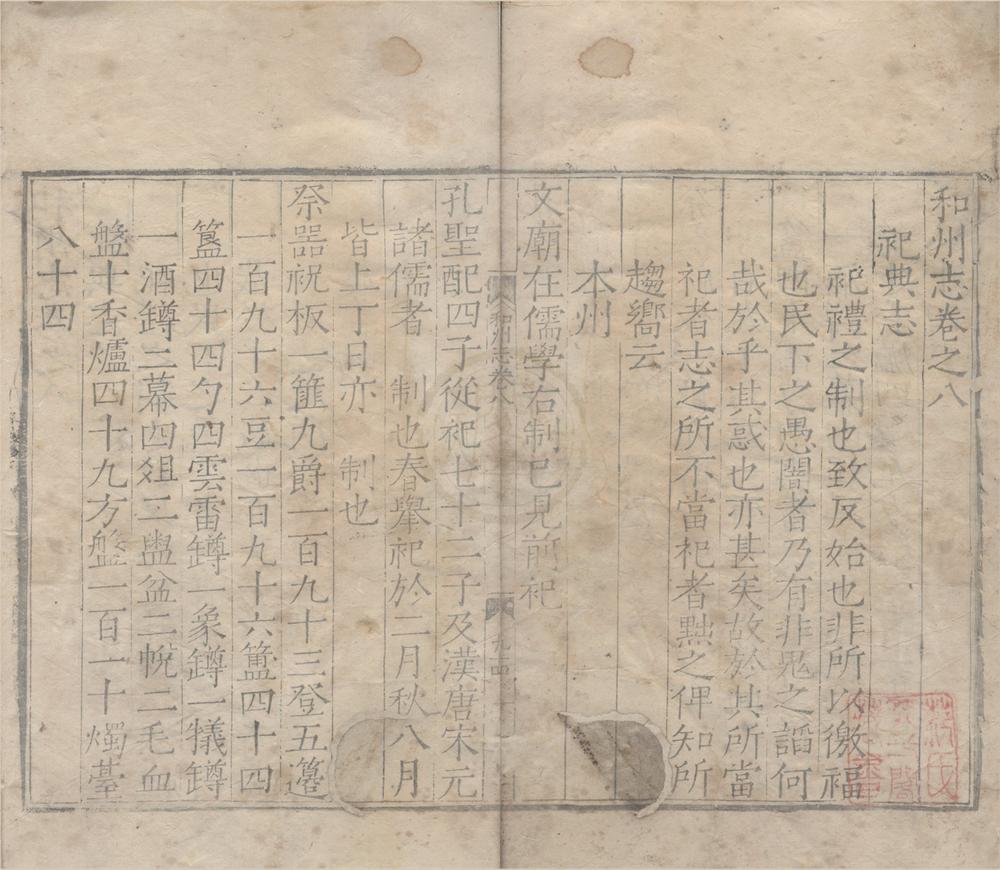 和州志卷之八
祀典志
祀禮之制也致反始也非所以徼福
也民下之愚闇者乃有非鬼之謟何
哉於乎其惑也亦甚矣故於其所當
祀者志之所不當祀者黜之俾知所
趨嚮云
本州
文廟在儒學右制已見前祀
和州志卷八
孔聖配四子從祀七十二子及漢唐宋元
諸儒者 制也春舉祀於二月秋八月
皆上丁日亦 制也
祭器祝板一篚九爵一百九十三登五籩
一百九十六豆一百九十六簠四十四
簋四十四勺四雲雷罇一象罇一犧罇
一酒罇二幕四俎二盥盆二帨二毛血
盤十香爐四十九方盤二百一十燭䑓
八十四